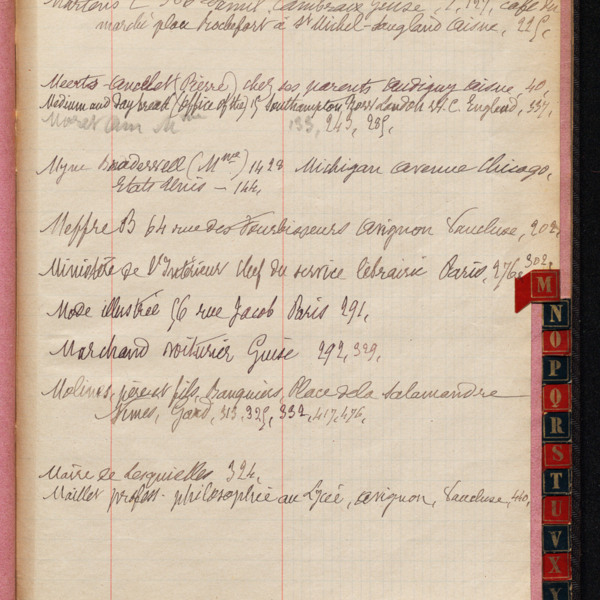 marché place Rochefort à St Michel-Sougland Aisne, 225,
Meerts-Anchet (Pierre) chez ses parents Audigny Aisne, 40,
Medium and daybreak (Office of the) 15 Southampton Row London W.C. England, 337,
245, 285,
Myra Bradwell (Mme) 1428 Michigan avenue Chicago,
Etats Unis – 144,
Meffre B 64 rue des Fourbisseurs Avignon Vaucluse, 202,
Ministère de l'Intérieur Chef du service librairie Paris, 276, 302,
Mode illustrée 56 rue Jacob Paris 291,
Marchand voiturier Guise 292, 329,
Molines, père et fils, Banquiers, Place de la Salamandre
Nîmes, Gard, 313, 325, 332, 417, 476,
Maire de Lesquielles 324,
Maillet profess. philosophie au Lycée, Avignon, Vaucluse, 440,
M
N
O
P
Q
R
S
T
U
V
X
Y